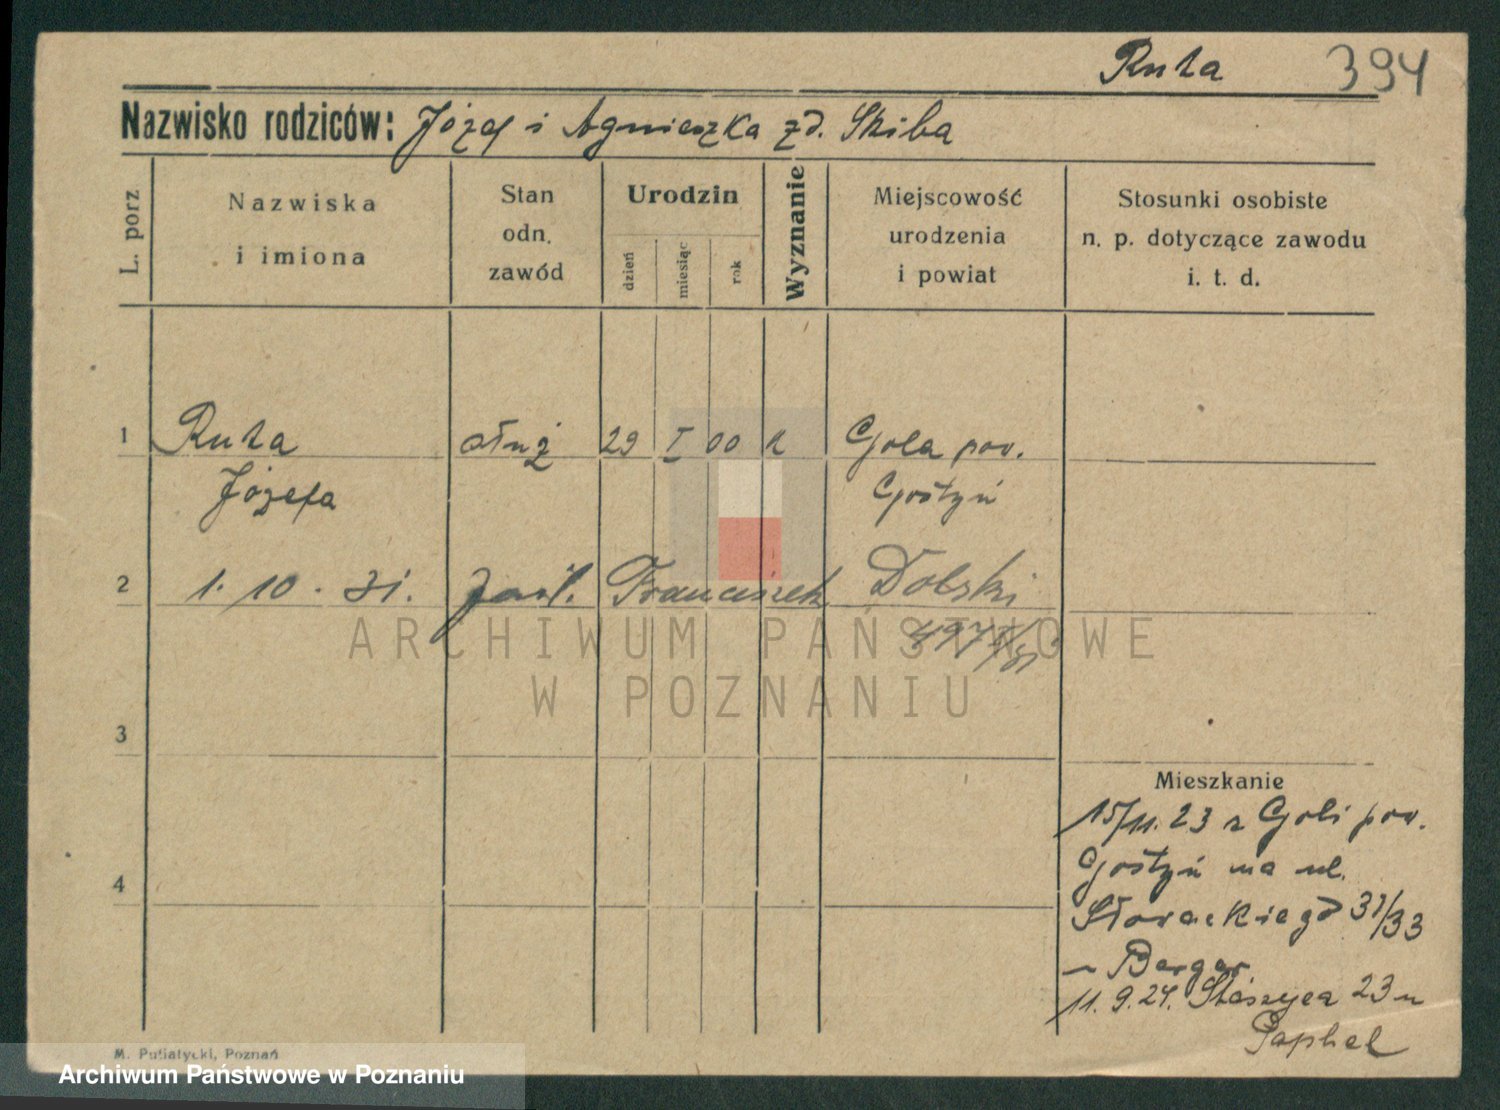 Ruta 394
Nazwisko rodziców: Józef i Agnieszka zd. Skiba
L. porz
Nazwiska
i imiona
Stan
odn.
zawód
Urodzin
dzień
miesiąc
rok
Wyznanie
Miejscowość
urodzenia
i powiat
Stosunki osobiste
n. p. dotyczące zawodu
i. t. d.
1 Ruta służ 29 I 00 k Gola pow.
Józefa Gostyń
2 1. 10. 31. Franciszek Dolski
ARCHIWUM PAŃSTWOWE
W POZNANIU
3
Mieszkanie
15/11. 23 z Goli pow.
4 Gostyń na ul.
Słowackiego 31/33
u Berger
11. 9. 24. Staszyca 23 u
Paphel
M. Putiatycki, Poznań
Archiwum Państwowe w Poznaniu